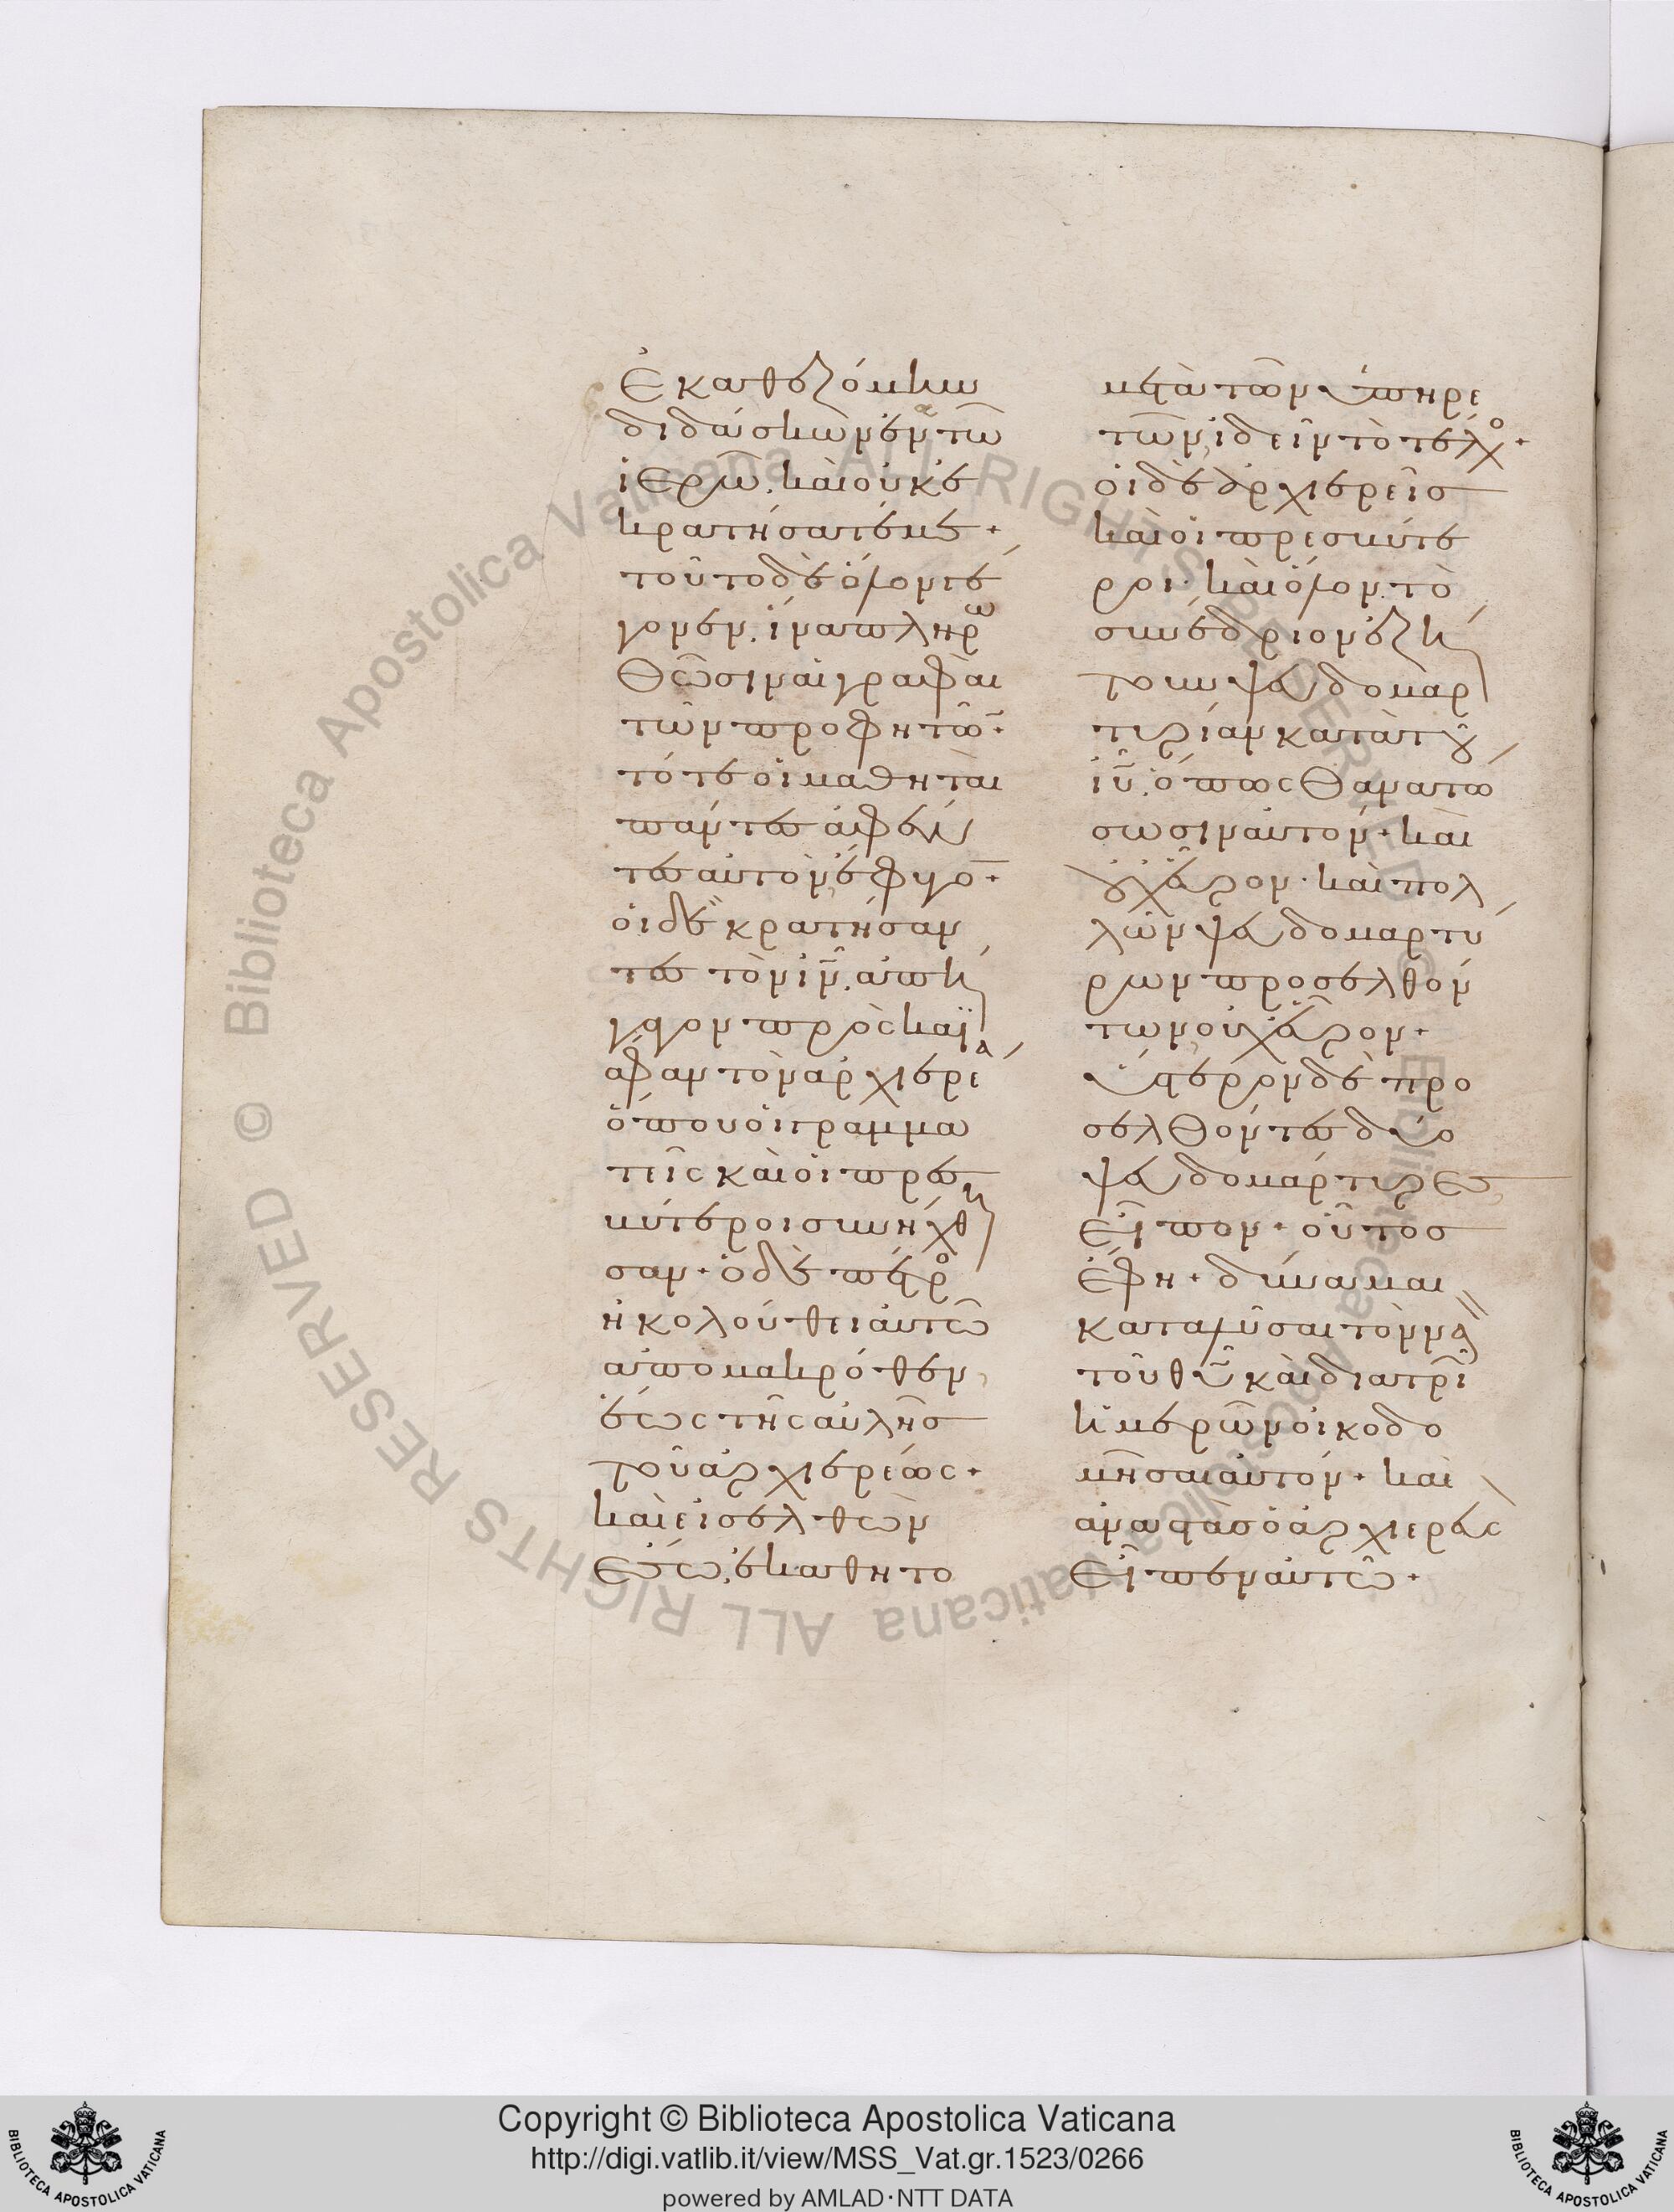 ἐκαθεζόμην
διδάσκων ἐν τῶ
ἱερῶ. καὶ οὐκ ἐ
κρατήσατέ με·
τοῦτο δὲ ὅλον γέ
γονεν. ἵνα πληρω
θῶσιν αἱ γραφαὶ
τῶν προφητῶν·
τότε οἱ μαθηταὶ
πάντες ἀφέν
τες αὐτὸν ἔφυγον·
οἱ δὲ κρατήσαν
τες τὸν ιν. ἀπή
γαγον πρὸς καϊ
άφαν τὸν ἀρχιερέα
ὅπου οἱ γραμμα
τεῖς καὶ οἱ πρεσ
βύτεροι συνήχθη
σαν· ὁ δὲ πέτρος
ἠκολούθει αὐτῶ
ἀπὸ μακρόθεν
ἕως τῆς αὐλῆς
τοῦ ἀρχιερέως·
καὶ εἰσελθὼν
ἔσω, ἐκάθητο
μετὰ τῶν ὑπηρε
τῶν, ἰδεῖν τὸ τέλος·
οἱ δὲ ἀρχιερεῖς
καὶ οἱ πρεσβύτε
ροι· καὶ ὅλον τὸ
συνέδριον ἐζή
τουν ψευδομαρ
τυρίαν κατὰ τοῦ
ιυ. ὅπως θανατώ
σωσιν αὐτόν· καὶ
οὐχ εὗρον· καὶ πολ
λῶν ψευδομαρτύ
ρων προσελθόν
των οὐχ εὗρον·
ὕστερον δὲ προ
σελθόντες δύο
ψευδομάρτυρες,
εἶπον· οὗτος
ἔφη· δύναμαι
καταλῦσαι τὸν ναὸν
τοῦ θυ καὶ διὰ τρι
ῶν ἡμερῶν οἰκοδο
μῆσαι αὐτόν· καὶ
ἀναστὰς ὁ ἀρχιερεὺς
εἶπεν αὐτῶ·
© Biblioteca Apostolica Vaticana ALL RIGHTS RESERVED
© Biblioteca Apostolica Vaticana ALL RIGHTS RESERVED
Copyright © Biblioteca Apostolica Vaticana
http://digi.vatlib.it/view/MSS_Vat.gr.1523/0266
powered by AMLAD·NTT DATA
BIBLIOTECA APOSTOLICA VATICANA
BIBLIOTECA APOSTOLICA VATICANA